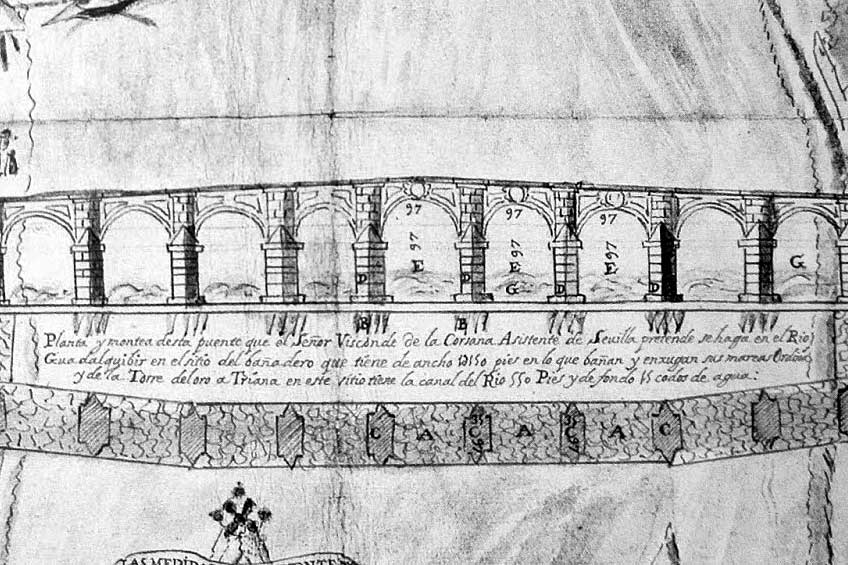 97 97 97
97 97 97
E E E G
D D G D D
B B
Planta y montea desta puente que el Señor Visconde de la Corsana Asistente de Sevilla pretende se haga en el Rio
Guadalquibir en el sitio del bañadero que tiene de ancho pies en lo que bañan y enxugan sus mareas Ordin
y de la Torre del oro a Triana en este sitio tiene la canal del Rio 550 Pies y de fondo 15 codos de agua:
C A G A G A C
LAS MEDID NTE